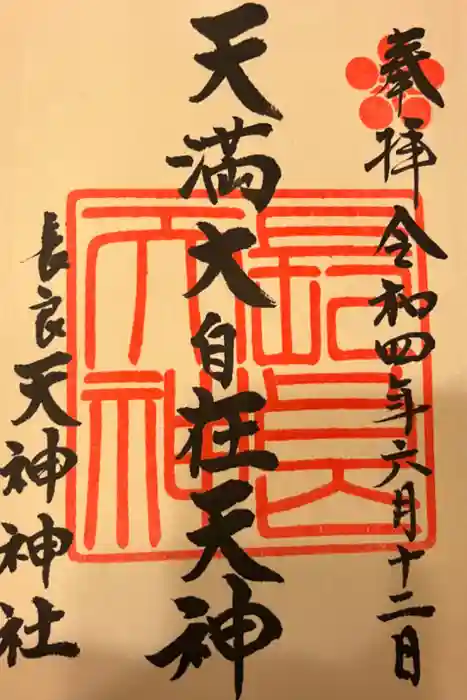 奉拝 令和四年六月十二日
天満大自在天神
長良天神神社
長良天神